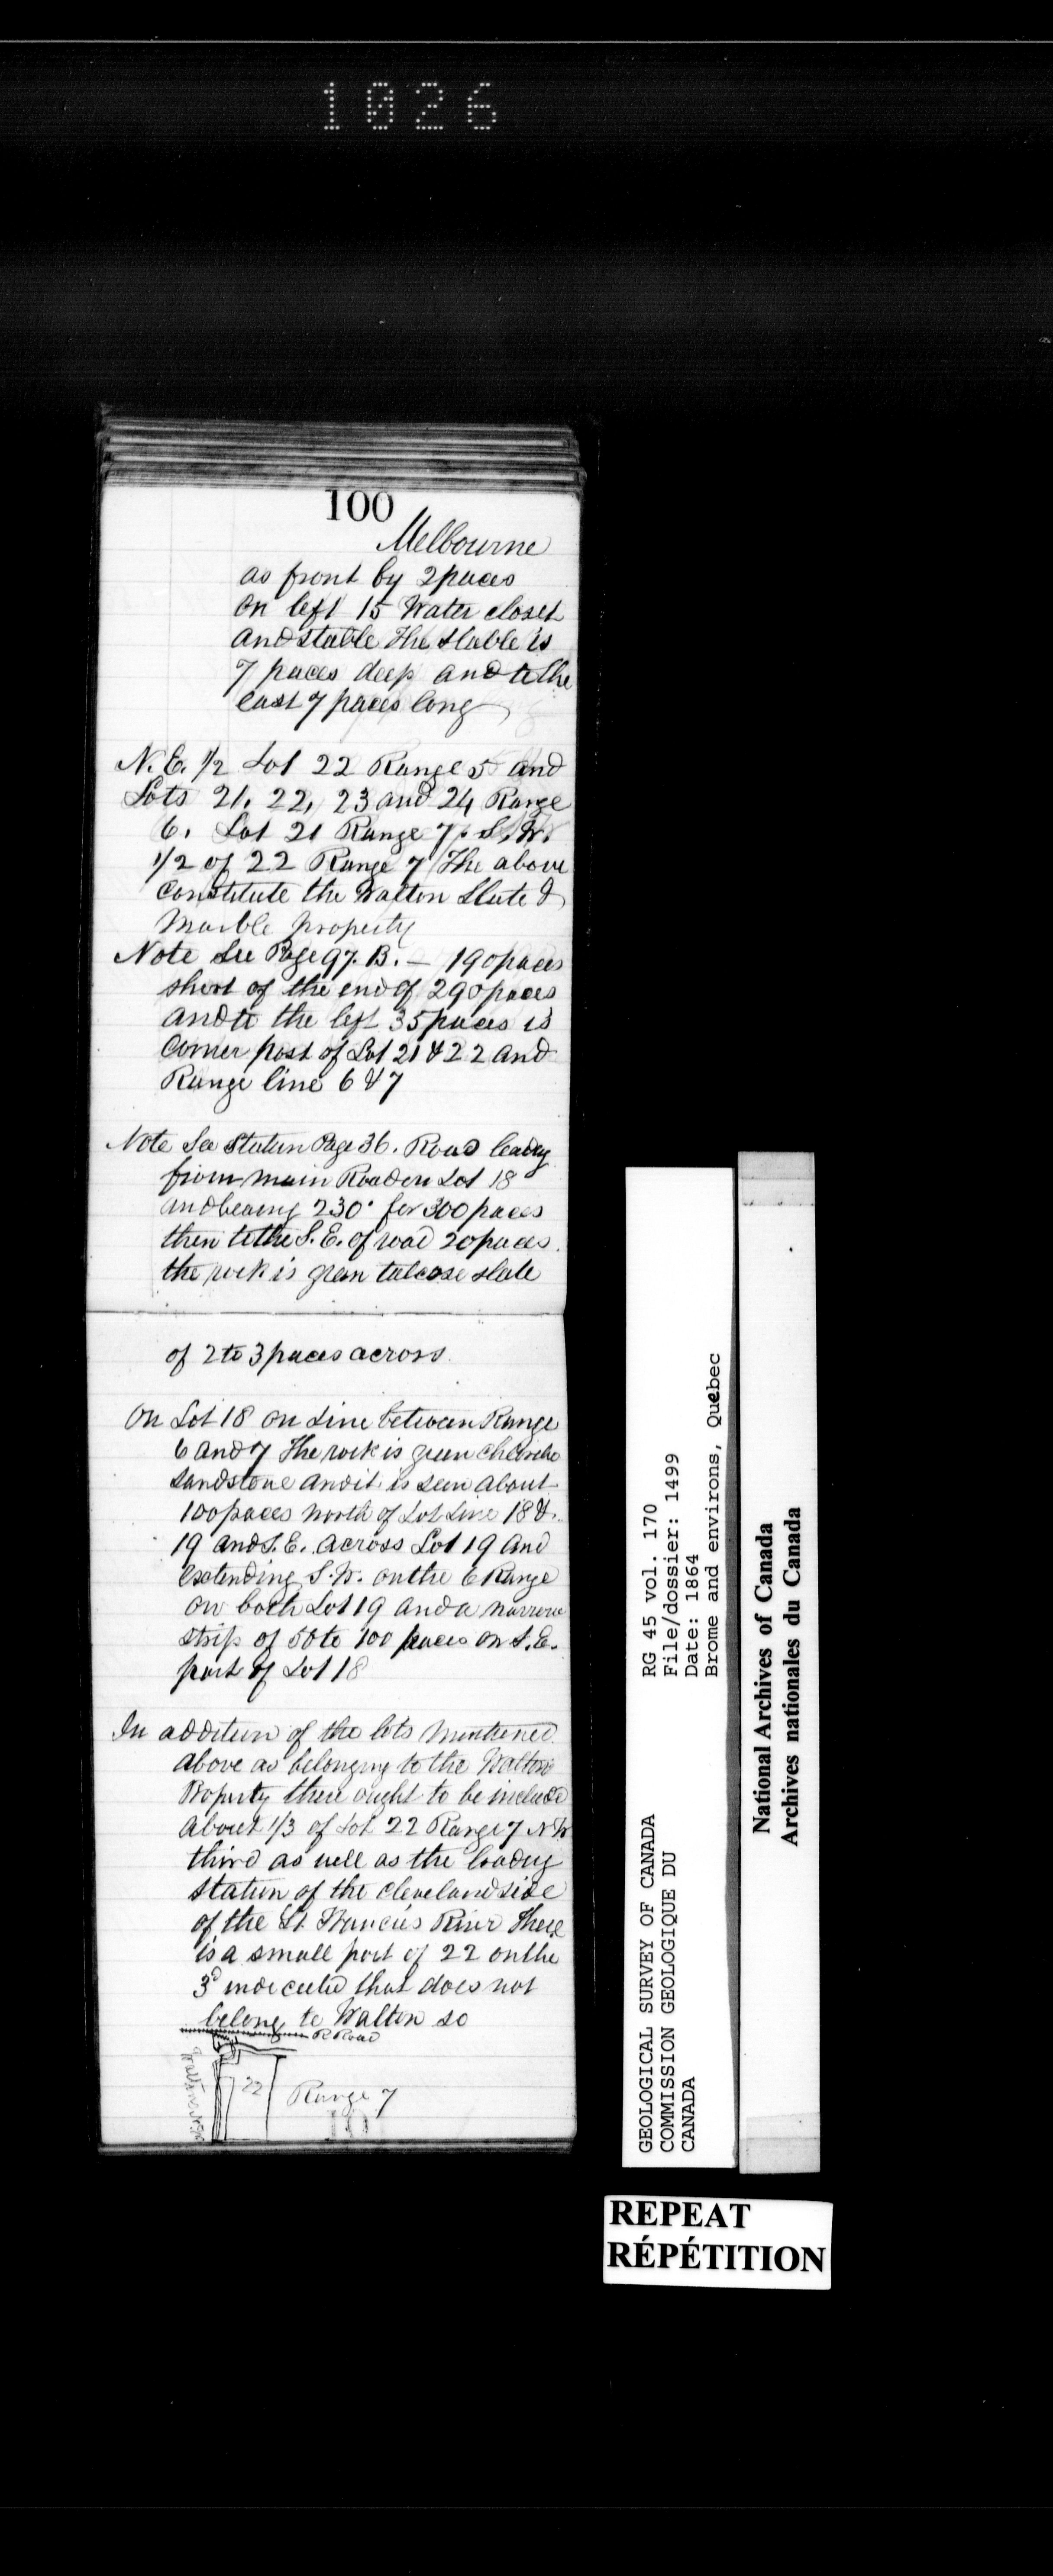 1026
100
Melbourne
as front by 2 paces
on left 15 Water closet
and stable The stable is
7 paces deep and to the
east 7 paces long
N.E. 1/2 Lot 22 Range 5 and
Lots 21, 22, 23 and 24 Range
6. Lot 21 Range 7. S.W.
1/2 of 22 Range 7 The above
constitute the Walton Slate &
Marble property
Note See Page 97. B. — 190 paces
short of the end of 290 paces
and to the left 35 paces is
corner post of Lot 21 & 22 and
Range line 6 & 7
Note See Station Page 36. Road leading
from main Road on Lot 18
and bearing 230° for 300 paces
then to the S.E. of road 20 paces.
the rock is green talcose slate
of 2 to 3 paces across.
On Lot 18 on Line between Range
6 and 7 The rock is green chloritic
sandstone and it is seen about
100 paces north of Lot Line 18 &
19 and S.E. across Lot 19 and
extending S.W. on the 6 Range
on both Lot 19 and a narrow
strip of 50 to 100 paces on S.E.
part of Lot 18
In addition of the lots mentioned
above as belonging to the Walton
Property there ought to be include
about 1/3 of Lot 22 Range 7 N W
third as well as the loading
station of the cleveland side
of the St. Francis River There
is a small part of 22 on the
3d indicated that does not
belong to Walton so
R Road
22
Range 7
101
GEOLOGICAL SURVEY OF CANADA
COMMISSION GEOLOGIQUE DU
CANADA
RG 45 vol. 170
File/dossier: 1499
Date: 1864
Brome and environs, Quebec
National Archives of Canada
Archives nationales du Canada
REPEAT
RÉPÉTITION